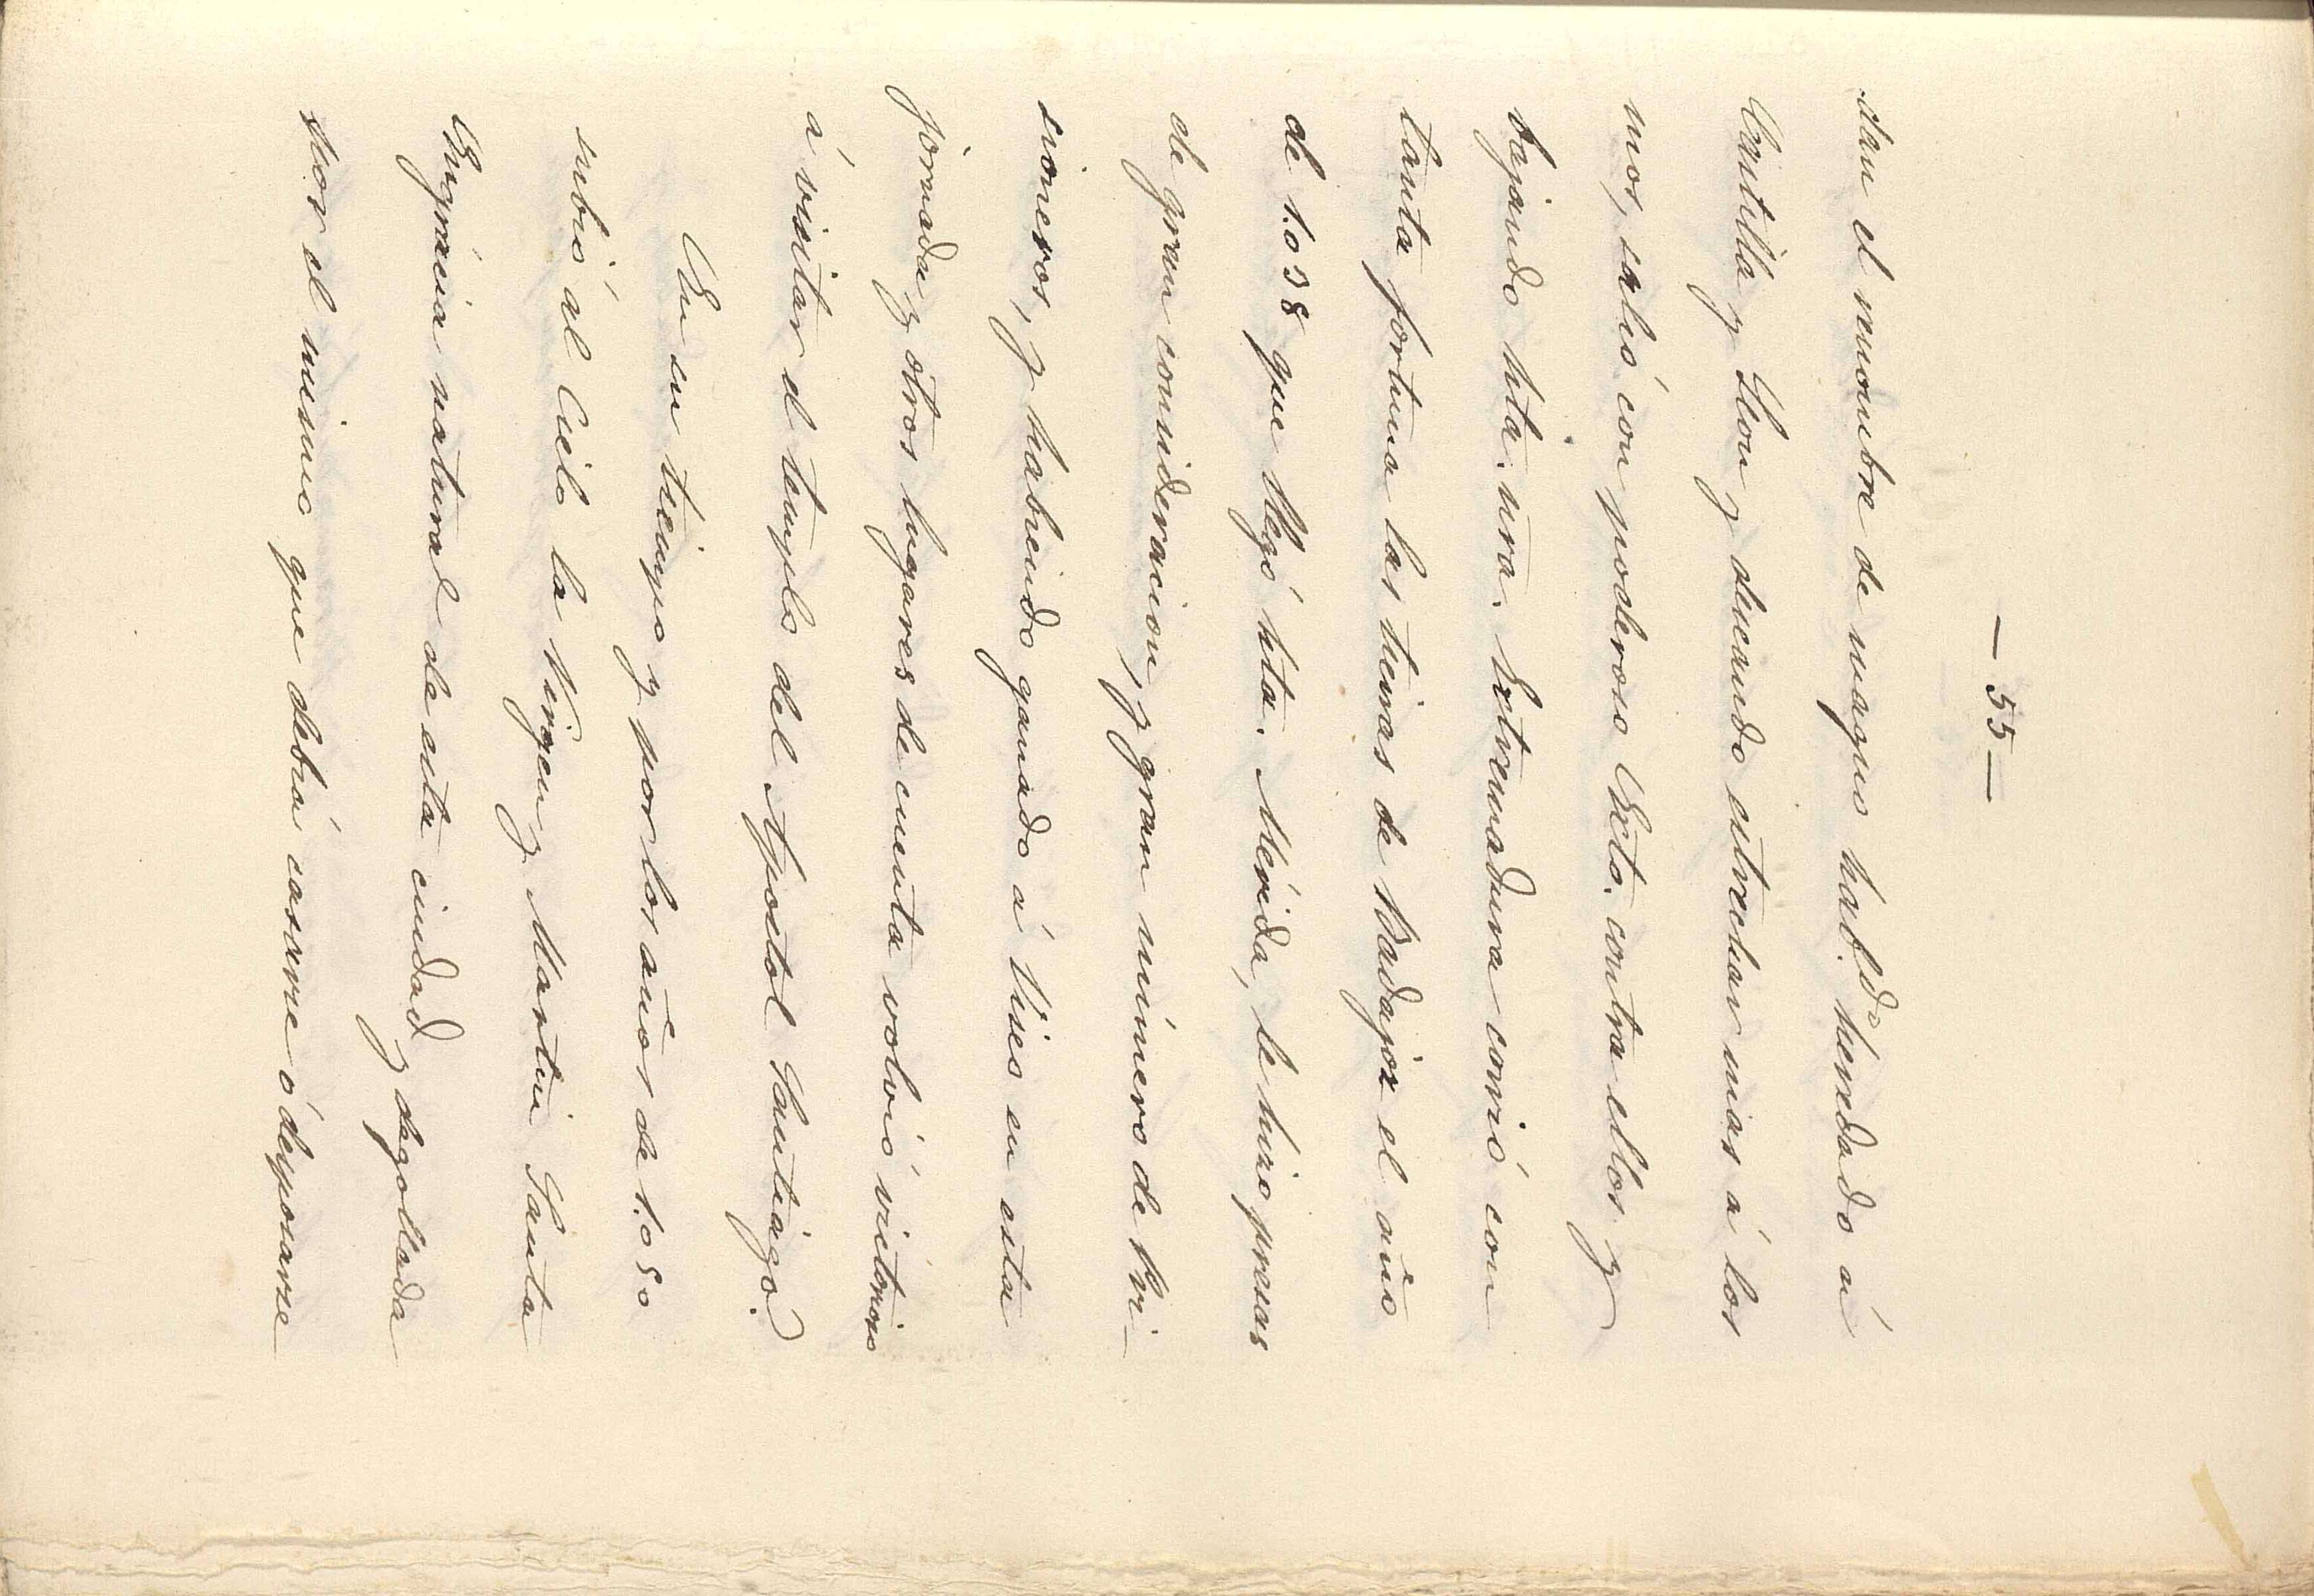 — 55 —
dan el renombre de magno hab.do heredado á
Castilla y Leon y deseando estrechar mas á los
mos, salió con poderoso Exto. contra ellos y
bajando hta. nra. Extremadura corrió con
tanta fortuna las tierras de Badajoz el año
de 1.038 que llegó hta. Mérida, le hizo presas
de gran consideracion, y gran número de Pri-
sioneros, y habiendo ganado á Viseo en esta
jornada y otros lugares de cuenta volvió victorioso
á visitar el templo del Apostol Santiago.
En su tiempo y por los años de 1.050
subió al Cielo la Virgen y Martir Santa
Engrácia natural de esta ciudad y degollada
por el mismo que debia casarse ó desposarse